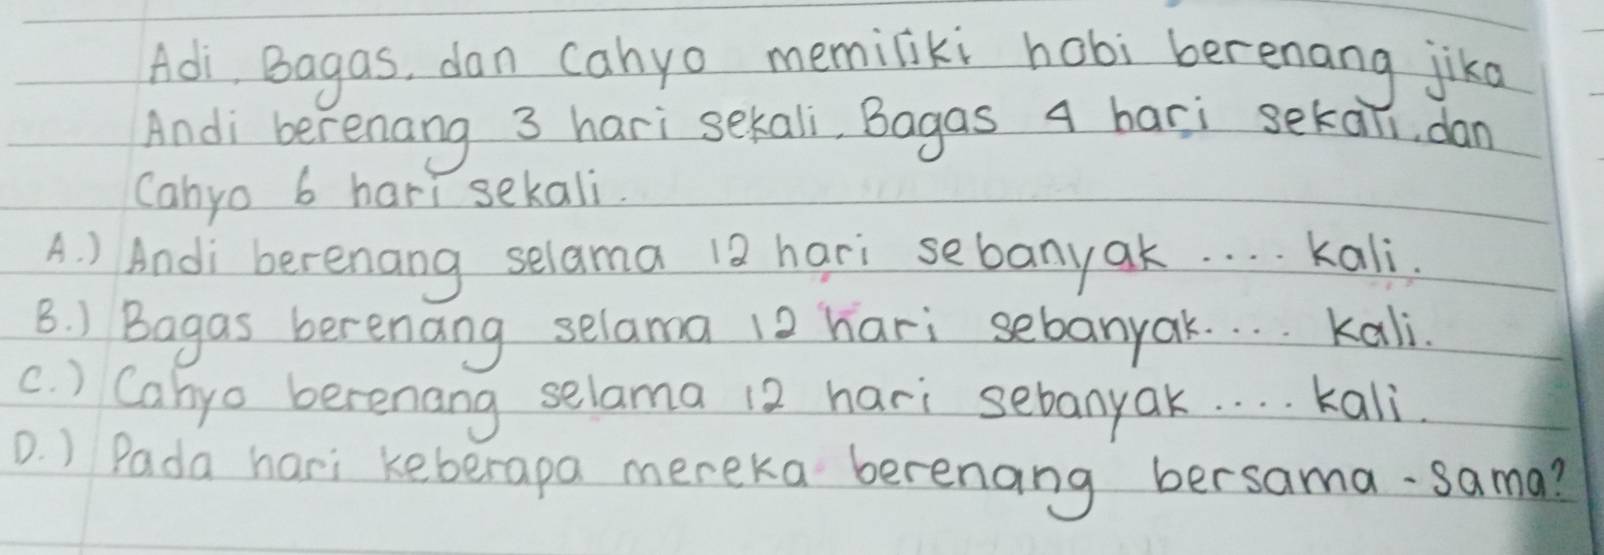 Adi, Bagas, dan Cahyo memiliki hobi berenang jika
Andi berenang 3 hari sekali, Bagas 4 hari sekali, dan
Cahyo 6 hari sekali.
A.) Andi berenang selama 12 hari sebanyak .... kali.
B.) Bagas berenang selama 12 hari sebanyak.... kali.
C.) Cahyo berenang selama 12 hari sebanyak .... kali.
D.) Pada hari keberapa mereka berenang bersama-sama?